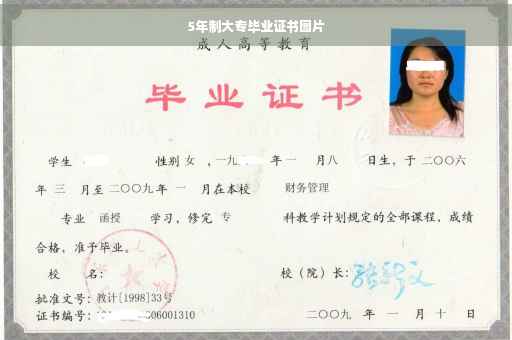 5年制大专毕业证书图片
成人高等教育
毕业证书
学生 性别 女 ，一九 年 一 月 八 日生，于 二〇〇六
年 三 月至 二〇〇九 年 一 月在本校 财务管理
专业 函授 学习，修完 专 科教学计划规定的全部课程，成绩
合格，准予毕业。
校 名： 校（院）长：
批准文号：教计[1998]33号
证书编号： 06001310 二〇〇九 年 一 月 十 日